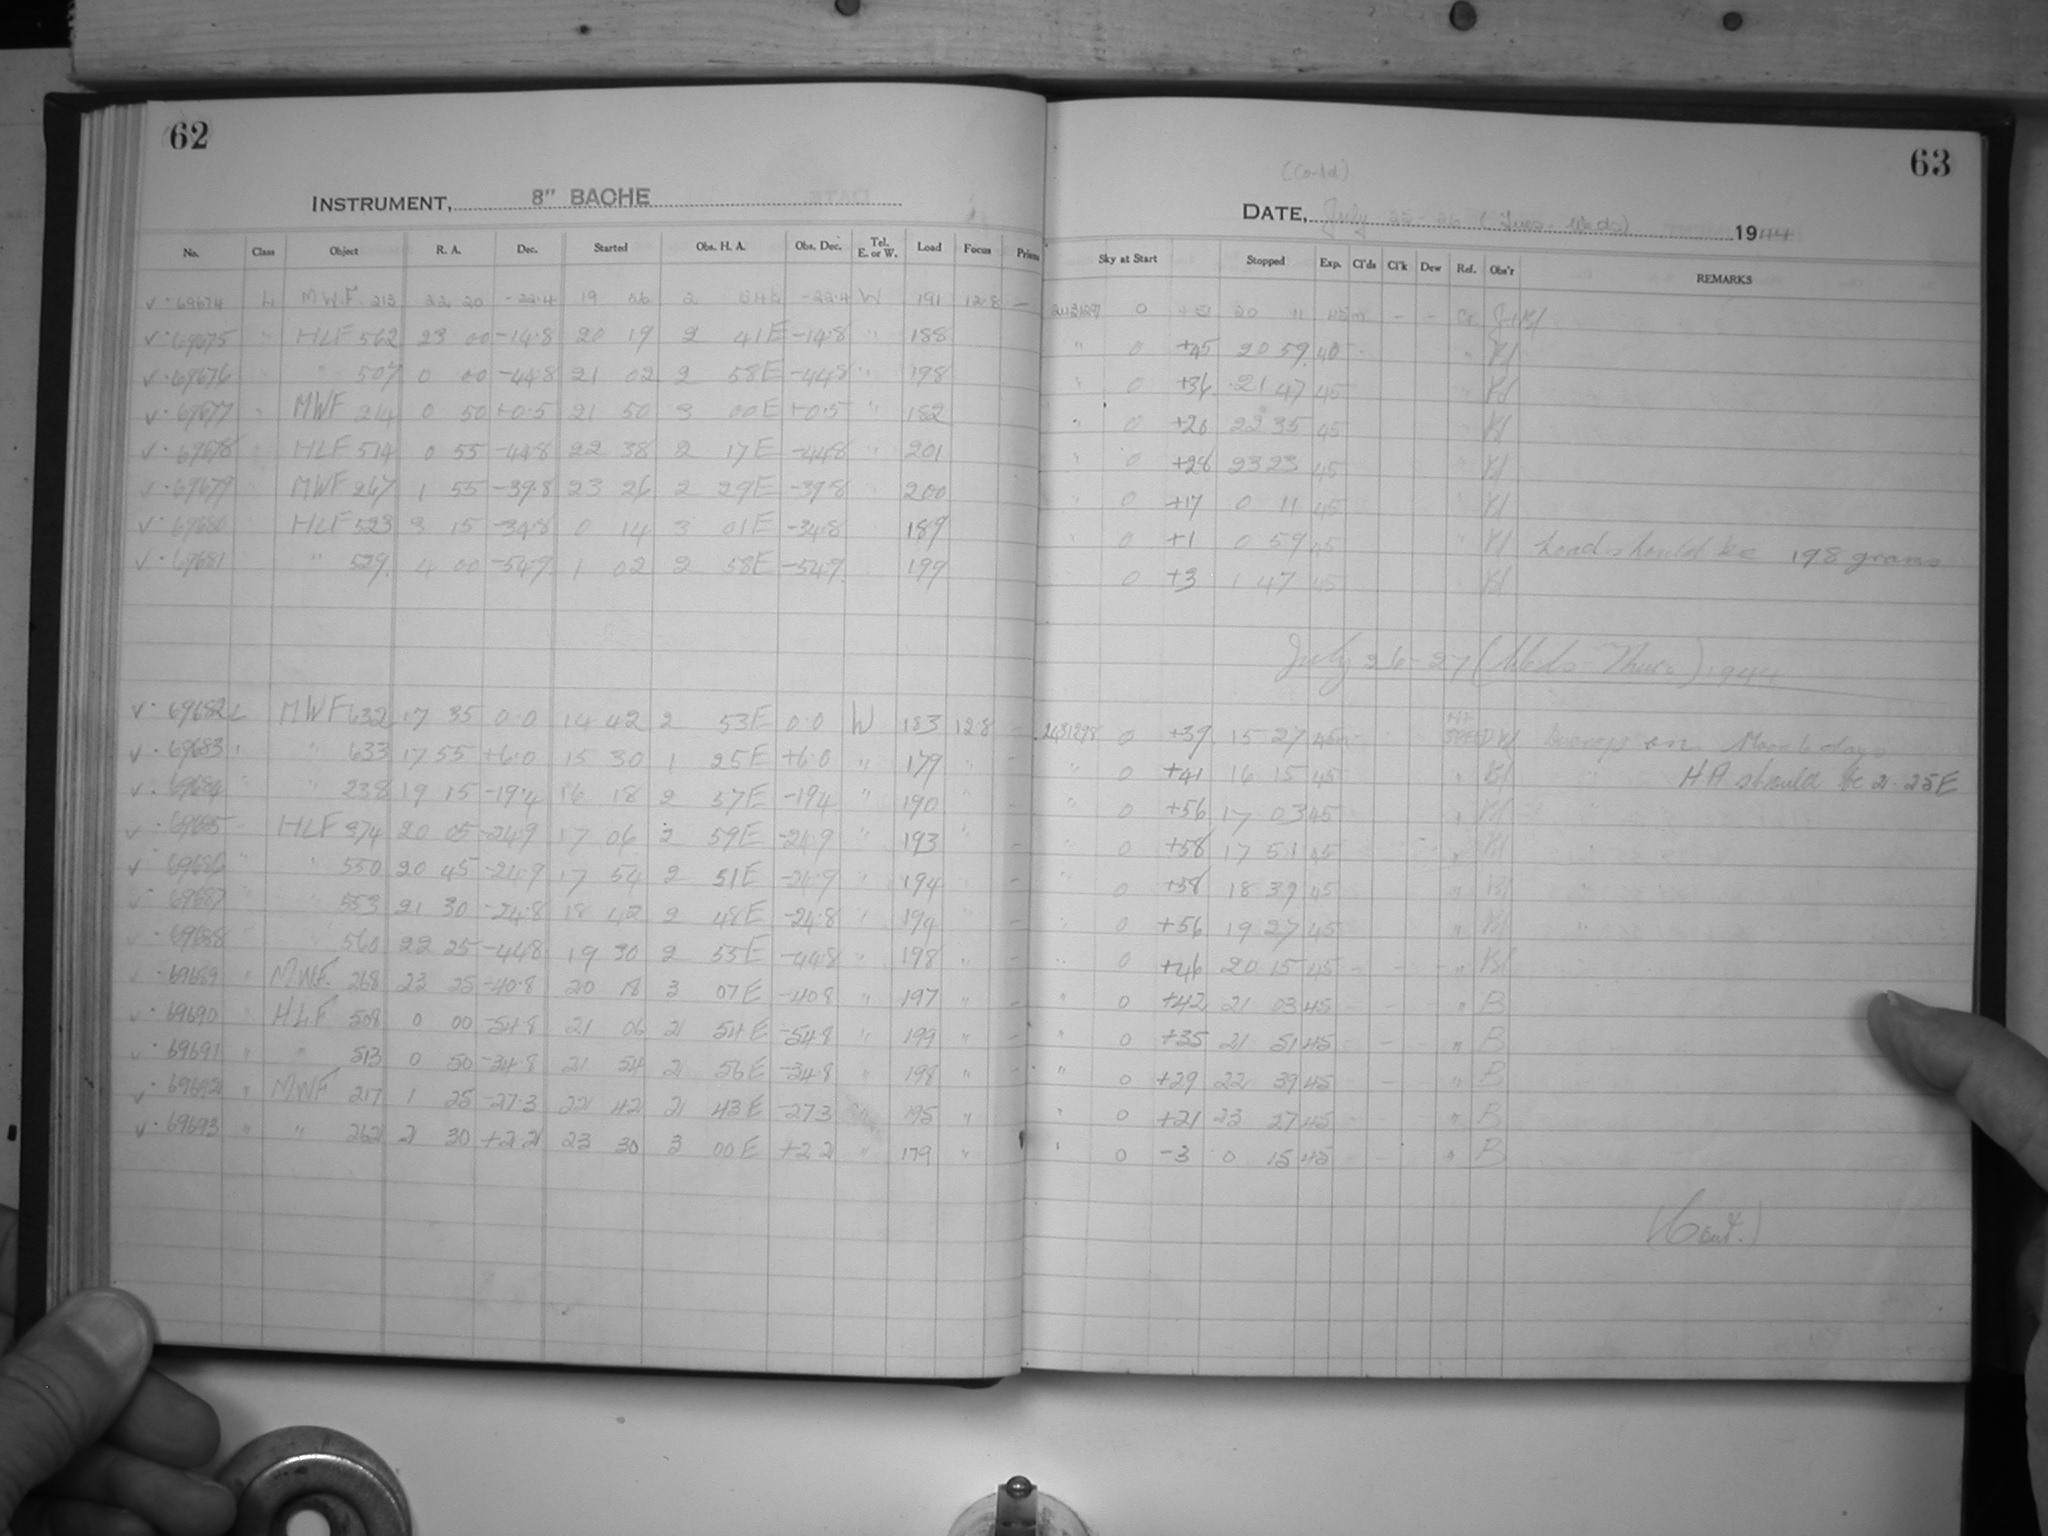 62
INSTRUMENT, 8" BACHE
No. Class Object R. A. Dec. Started Obs. H. A. Obs. Dec. Tel. E. or W. Load Focus Prism
69674 L MWF 213 22 20 -22.4 19 26 2 -22.4 W 191 12.8 -
69675 " HLF 562 23 00 -14.8 20 19 2 41E -14.8 " 188
69676 " 507 0 00 -44.8 21 02 2 58E -44.8 " 198
69677 MWF 214 0 50 +0.5 21 50 3 00E +0.5 " 182
69678 HLF 514 0 55 -44.8 22 38 2 17E -44.8 " 201
69679 MWF 267 1 55 -39.8 23 26 2 29E -39.8 " 200
69680 HLF 523 3 15 -34.8 0 14 3 01E -34.8 189
69681 " 529 4 00 -54.9 1 02 2 58E -54.9 199
69682 L MWF 632 17 35 0.0 14 42 2 53E 0.0 W 183 12.8 -
69683 " " 633 17 55 +6.0 15 30 1 25E +6.0 " 179 " -
69684 " " 238 19 15 -19.4 16 18 2 57E -19.4 " 190 " -
69685 HLF 374 20 05 -24.9 17 06 2 59E -24.9 " 193 " -
69686 " " 550 20 45 -24.9 17 54 2 51E -24.9 " 194 " -
69687 " " 553 21 30 -24.8 18 42 2 48E -24.8 " 194 " -
69688 560 22 25 -44.8 19 30 2 55E -44.8 " 198 " -
69689 " MWF. 268 23 25 -40.8 20 18 3 07E -40.8 " 197 " -
69690 " HLF 508 0 00 -54.8 21 06 2 54E -54.8 " 199 " -
69691 " " 513 0 50 -34.8 21 54 2 56E -34.8 " 198 " -
69692 " MWF 217 1 25 -27.3 22 42 2 43E -27.3 " 195 "
69693 " " 262 2 30 +2.2 23 30 3 00E +2.2 " 179 "
63
(Contd)
DATE, July 25-26 (Tues-Weds) 1944
Sky at Start Stopped Exp. Cl'ds Cl'k Dew Ref. Obs'r REMARKS
2431297 0 +51 20 11 45m - - Cr
" 0 +45 20 59 40 "
" 0 +36 21 47 45 "
" 0 +26 22 35 45 "
" 0 +28 23 23 45 "
" 0 +17 0 11 45 "
" 0 +1 0 59 45 " Load should be 198 grams
0 +3 1 47 45
July 26-27 (Weds-Thurs) 1944
2431298 0 +39 15 27 45m SPEED on Moon 6 days
" 0 +41 16 15 45 " HA should be 2.25E
" 0 +56 17 03 45 "
" 0 +58 17 51 45 "
" 0 +58 18 39 45 "
" 0 +56 19 27 45 "
" 0 +46 20 15 45 - - - "
" 0 +42 21 03 45 - - - " B
" 0 +35 21 51 45 - - - " B
" 0 +29 22 39 45 - - - " B
" 0 +21 23 27 45 - - - " B
" 0 -3 0 15 45 - - " B
(Cont.)